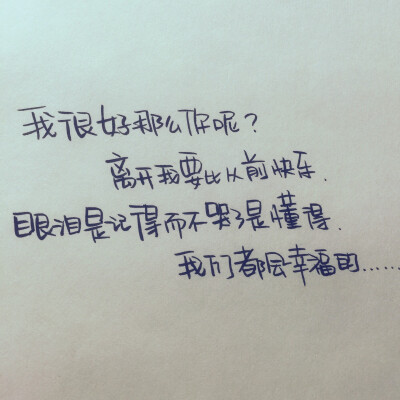 我很好那么你呢？
离开我要比从前快乐.
眼泪是记得而不哭了是懂得.
我们都会幸福的......